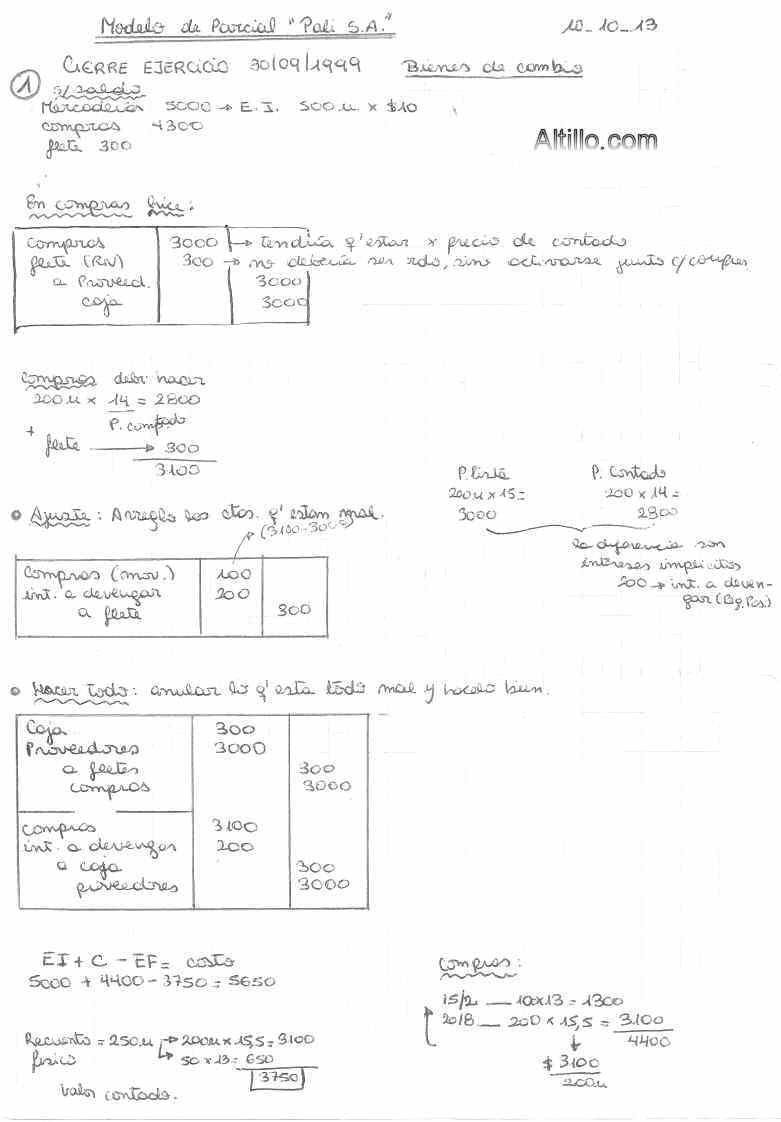 Modelo de Parcial "Pali S.A." 10-10-13
CIERRE EJERCICIO 30/09/1999 Bienes de cambio
1 s/saldo
Mercaderias 5000 → E.I. 500 u x $10
compras 4300
flete 300
Altillo.com
En compras hice:
compras 3000 → tendria q'estar x precio de contado
flete (RN) 300 → no deberia ser rdo, sino activarse junto c/compras
a Proveed. 3000
caja 3000
compras debi hacer
200 u x 14 = 2800
P. contado
+
flete → 300
3100
P. lista P. Contado
200u x 15 = 200 x 14 =
3000 2800
la diferencia son
intereses implicitos
200 → int. a deven-
gar (Reg. Pas.)
• Ajuste: Arreglo las ctas. q'estan mal.
(3100-3000)
compras (mov.) 100
int. a devengar 200
a flete 300
• Hacer todo: anular lo q'esta todo mal y hacerlo bien.
Caja 300
Proveedores 3000
a fletes 300
compras 3000
compras 3100
int. a devengar 200
a caja 300
proveedores 3000
EI + C - EF = costo
5000 + 4400 - 3750 = 5650
Recuento = 250 u → 200u x 15,5 = 3100
fisico → 50 x 13 = 650
3750
Valor contado.
compras:
15/2 — 10x13 = 1300
2018 — 200 x 15,5 = 3.100
4400
$ 3100
200u